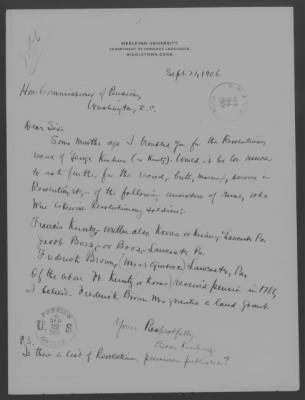 WESLEYAN UNIVERSITY
DEPARTMENT OF ROMANCE LANGUAGES
MIDDLETOWN, CONN.
Sept. 21, 1906
Hon Commissioner of Pensions,
Washington, D.C.
Dear Sir:
Some months ago I troubled you for the Revolutionary
record of George (or Kuntz). Would it be too much
to ask further for the record, (birth, marr.), service in
Revolution, etc, of the following ancestors of mine, who
were likewise Revolutionary soldiers.
Francis Kuntz, written also Koons or Lancaster Pa.
Jacob or Lancaster Pa.
Frederick Lancaster, Pa.
Of the above Mr. Kuntz (or Koons) received pension in
I believe. Frederick was granted a land grant.
Yours Respectfully,
P.S.
Is there a list of Revolution. pensions published?
PENSION
OFFICE
U S